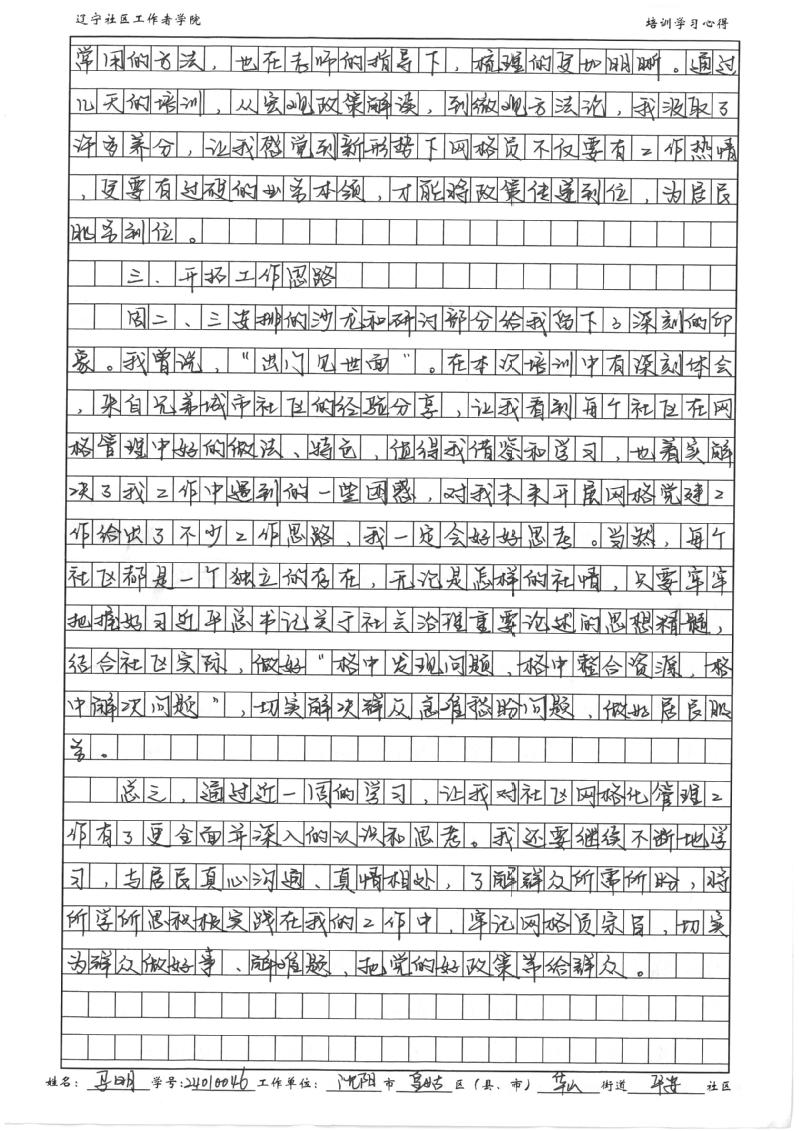 辽宁社区工作者学院 培训学习心得
常用的方法，也在老师的指导下，梳理的更加明晰。通过
几天的培训，从宏观政策解读，到微观方法论，我汲取了
许多养分，让我感觉到新形势下网格员不仅要有工作热情
，更要有过硬的业务本领，才能将政策传递到位，为居民
服务到位。
三、开拓工作思路
周二、三安排的沙龙和研讨部分给我留下了深刻的印
象。我曾说，“出门见世面”。在本次培训中有深刻体会
，来自兄弟城市社区的经验分享，让我看到每个社区在网
格管理中好的做法、特色，值得我借鉴和学习，也着实解
决了我工作中遇到的一些困惑，对我未来开展网格党建工
作给出了不少工作思路，我一定会好好思考。当然，每个
社区都是一个独立的存在，无论是怎样的社情，只要牢牢
把握好习近平总书记关于社会治理重要论述的思想精髓，
结合社区实际，做好“格中发现问题、格中整合资源，格
中解决问题”，切实解决群众急难愁盼问题，做好居民服
务。
总之，通过近一周的学习，让我对社区网格化管理工
作有了更全面并深入的认识和思考。我还要继续不断地学
习，与居民真心沟通、真情相处，了解群众所需所盼，将
所学所思积极实践在我的工作中，牢记网格员宗旨，切实
为群众做好事、解难题，把党的好政策带给群众。
姓名：马明 学号：24010046 工作单位：沈阳市皇姑区（县、市）华山街道平安社区